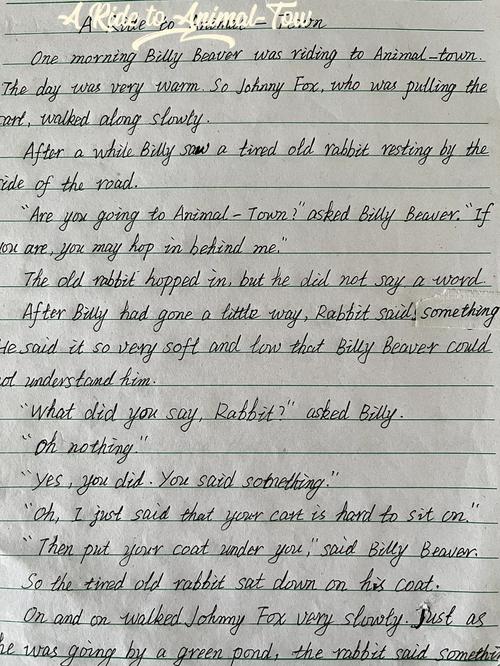 A Ride to Animal-Tow
A Ride to Animal-Town
One morning Billy Beaver was riding to Animal-town.
The day was very warm. So Johnny Fox, who was pulling the
cart, walked along slowly.
After a while Billy saw a tired old rabbit resting by the
ide of the road.
"Are you going to Animal-Town?" asked Billy Beaver. "If
ou are, you may hop in behind me."
The old rabbit hopped in, but he did not say a word.
After Billy had gone a little way, Rabbit said, something
He said it so very soft and low that Billy Beaver could
ot understand him.
"What did you say, Rabbit?" asked Billy.
"Oh nothing."
"Yes, you did. You said something."
"Oh, I just said that your cart is hard to sit on."
"Then put your coat under you," said Billy Beaver.
So the tired old rabbit sat down on his coat.
On and on walked Johnny Fox very slowly. Just as
he was going by a green pond, the rabbit said somethin